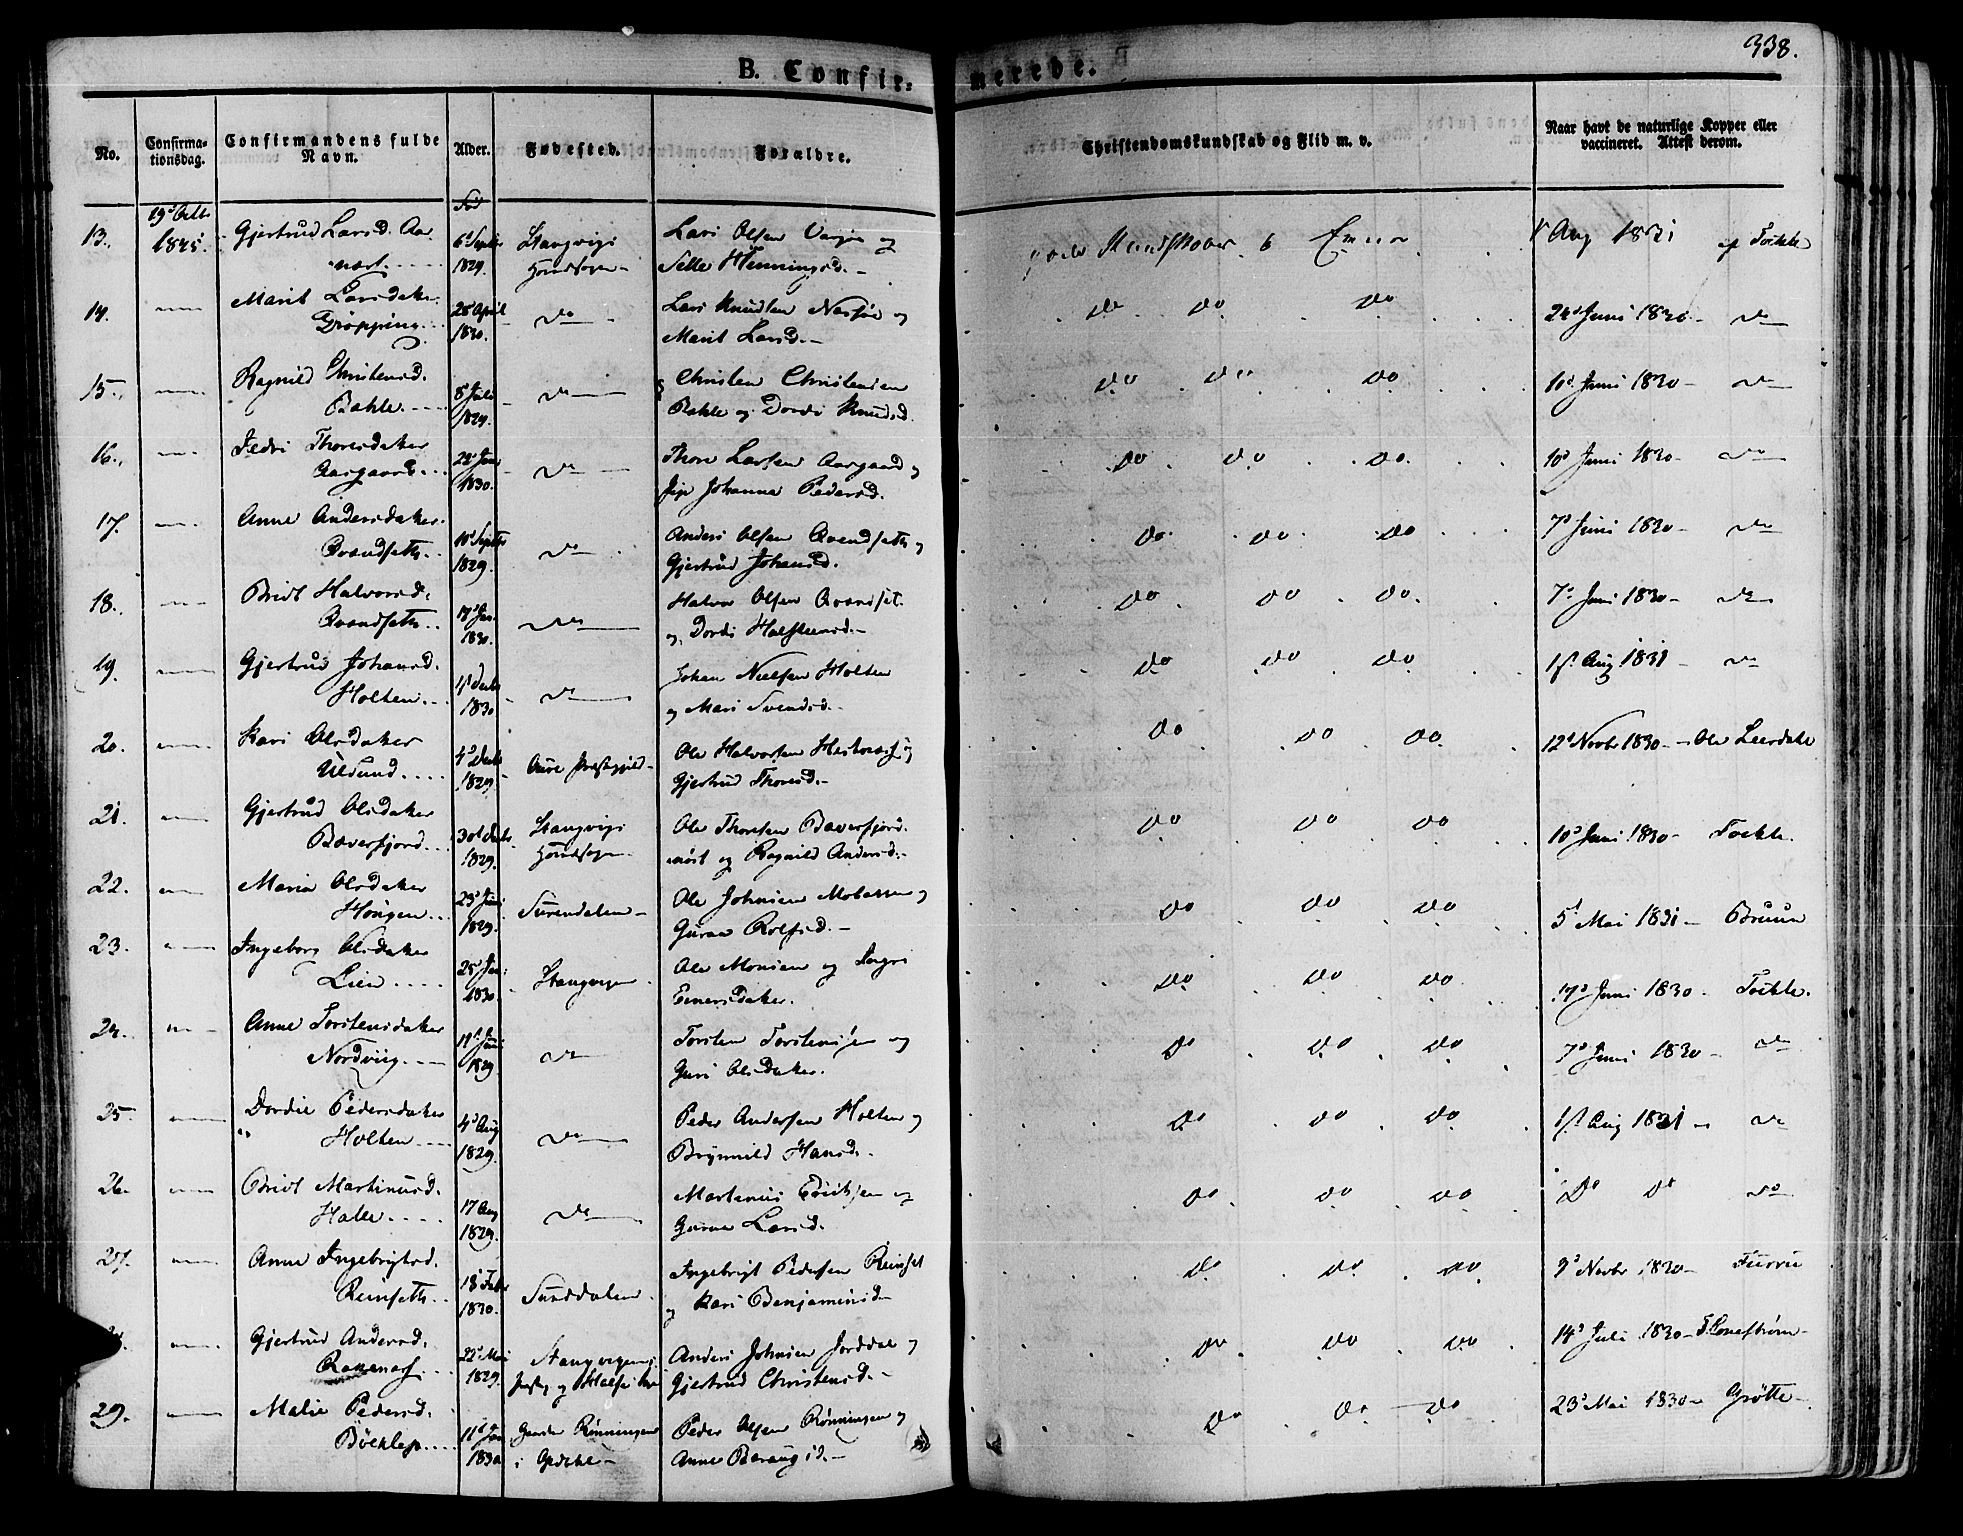 338.
B. Confir-merede.
No.
Confirma-
tionsdag.
Confirmandens fulde
Navn.
Alder.
Fødested.
Forældre.
Christendomskundskab og Flid m. v.
Naar havt de naturlige Kopper eller
vaccineret. Attest derom.
13. 19d Octbr 1845. Gjertrud Larsd. 6d Septbr 1829. Stangvigs Hovedsogn Lars Olsen og Sille Henningsd. Aug 1831 af Fockle
14. Marit Larsdatter Drøpping 28 April 1830. do Lars Knudsen Nesøe og Marit Larsd. do do do Juni 1830 do
15. Ragnild Christensd. Bahle 8d Juli 1829. do Christen Christensen Bahle og Dordi Knudsd. do do do 10d Juni 1830 do
16. Thoresdatter Aasgaard 22d 1830. do Thore Larsen Aasgaard og Johanna Pedersd. do do do 10d Juni 1830 do
17. Anne Andersdatter Qvandseth 10d Septbr 1829. do Anders Olsen Qvandseth og Gjertrud Johansd. do do do 7d Juni 1830 do
18. Bridt Halvorsd. Qvandseth 17d Jan. 1830. do Halvor Olsen Qvandset og Dordi Halsteensd. do do do 7d Juni 1830 do
19. Gjertrud Johansd. Holten 1830 do Johan Nielsen Holten og Mari Svendsd. do do do Aug 1831 do
20. Kari Olsdatter Ulsund 4d Decbr 1829. Aure Præstegjeld Ole Halvorsen og Gjertrud Thoresd. do do do 12d Novbr 1830 Ole Leerdahl
21. Gjertrud Olsdatter Bæverfjord 30d Decbr 1829. Stangvigs Hovedsogn Ole Thoresen Bæverfjord og Ragnild Andersd. do do do 10d Juni 1830 Fockle.
22. Maria Olsdatter Hougen 23d Juni 1829. Surendalen Ole Johnsen og Guraa Rolfsd. do do do 5d Mai 1831 Bruun
23. Ingeborg Olsdatter Lien 25d 1830 Stangvigen Ole Monsen og Ingri Einersdatter. do do do 17d Juni 1830 Fockle.
24. Anne Torstensdatter Nordviig 1829. do Torsten Torstensen og Guri Olsdatter. do do do 7d Juni 1830 do
25. Dordie Pedersdatter Holten 4d Aug 1829. do Peder Andersen Holten og Brynnild Hansd. do do do Aug 1831 do
26. Bridt Martinusd. Halle 17 Aug 1829. do Martinus Erichsen og Guraa Larsd. do do do Do Do do
27. Anne Ingebrigtsd. Reinseth 18d Febr 1830. Sunddalen Ingebrigt Pedersen Reinset og Kari Benjaminsd. do do do 9d Novbr 1830
Gjertrud Andersd. 22d Mai 1829. Anders Johnsen Jorddal og Gjertrud Christensd. do do do 14d Juli 1830
29. Malie Pedersd. Böchlep 11d Jan 1830 Rønningen i Opdahl Peder Olsen Rønningen og Anne do do do 23d Mai 1830 Grötte